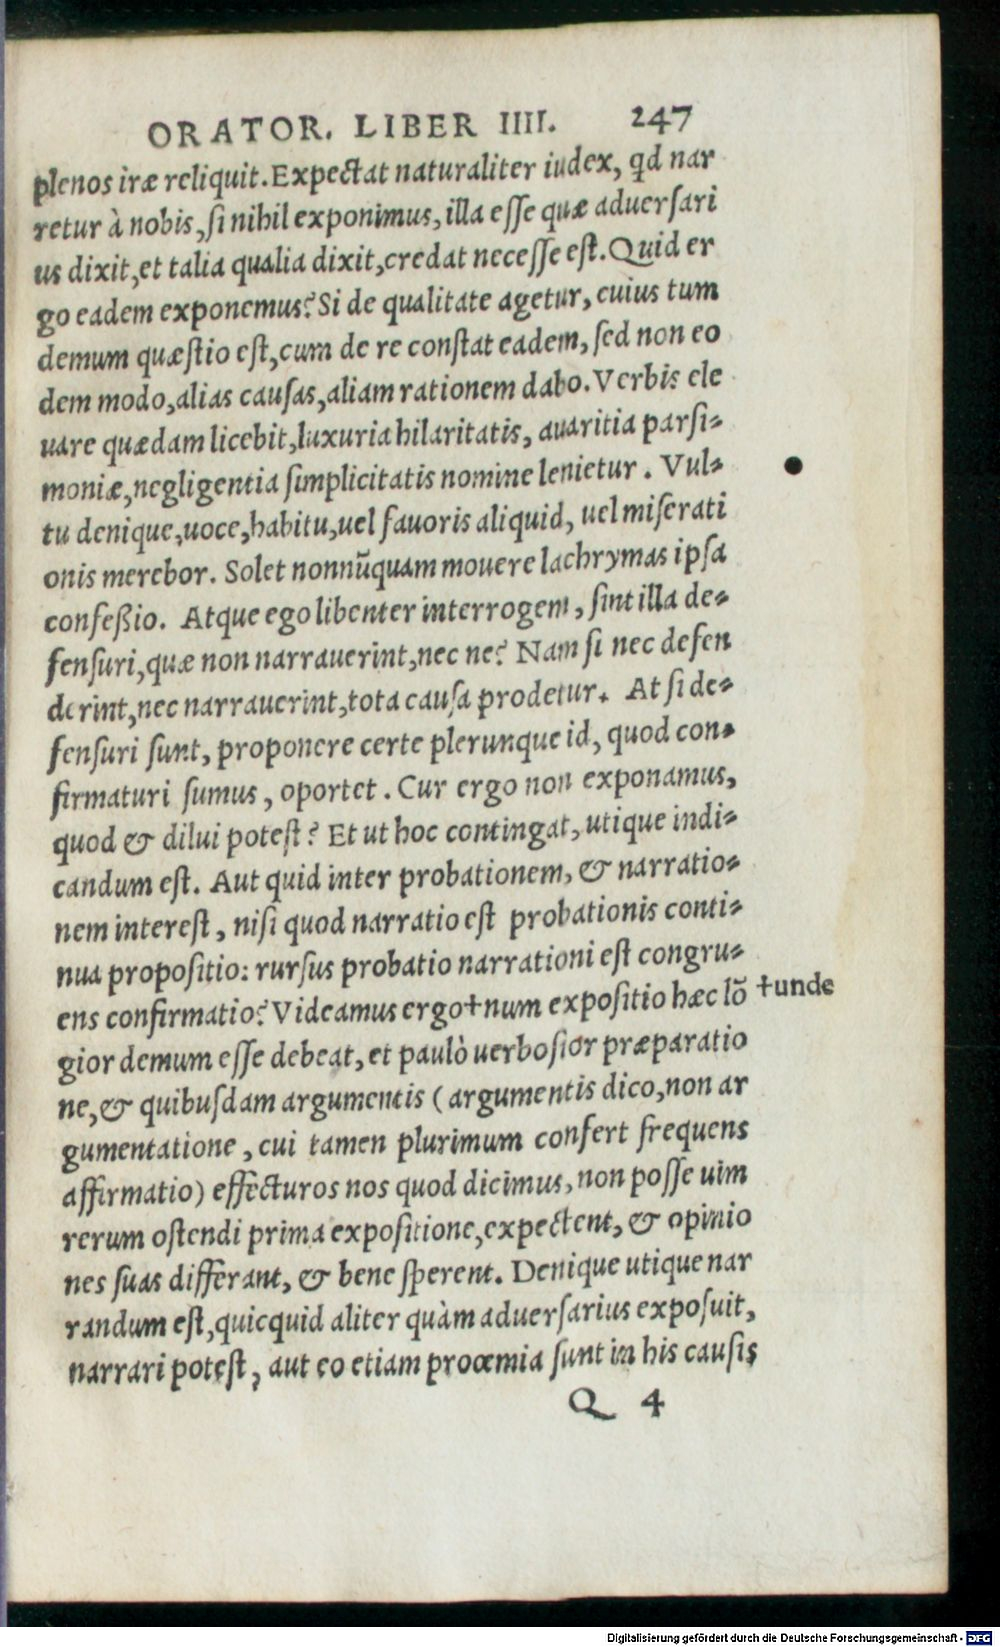 ORATOR. LIBER IIII. 247
plenos iræ reliquit. Expectat naturaliter iudex, qd nar
retur à nobis, si nihil exponimus, illa esse quæ aduersari
us dixit, et talia qualia dixit, credat necesse est. Quid er
go eadem exponemus? Si de qualitate agetur, cuius tum
demum quæstio est, cum de re constat eadem, sed non eo
dem modo, alias causas, aliam rationem dabo. Verbis ele
uare quædam licebit, luxuria hilaritatis, auaritia parsi-
moniæ, negligentia simplicitatis nomine lenietur. Vul-
tu denique, uoce, habitu, uel fauoris aliquid, uel miserati
onis merebor. Solet nonnũquam mouere lachrymas ipsa
confeßio. Atque ego libenter interrogem, sint illa de-
fensuri, quæ non narrauerint, nec ne? Nam si nec defen
derint, nec narrauerint, tota causa prodetur. At si de-
fensuri sunt, proponere certe plerunque id, quod con-
firmaturi sumus, oportet. Cur ergo non exponamus,
quod & dilui potest? Et ut hoc contingat, utique indi-
candum est. Aut quid inter probationem, & narratio-
nem interest, nisi quod narratio est probationis conti-
nua propositio: rursus probatio narrationi est congru-
ens confirmatio? Videamus ergo †num expositio hæc lõ †unde
gior demum esse debeat, et paulò uerbosior præparatio
ne, & quibusdam argumentis (argumentis dico, non ar
gumentatione, cui tamen plurimum confert frequens
affirmatio) effecturos nos quod dicimus, non posse uim
rerum ostendi prima expositione, expectent, & opinio
nes suas differant, & bene sperent. Denique utique nar
randum est, quicquid aliter quàm aduersarius exposuit,
narrari potest, aut eo etiam procemia sunt in his causis
Q 4
Digitalisierung gefördert durch die Deutsche Forschungsgemeinschaft - DFG